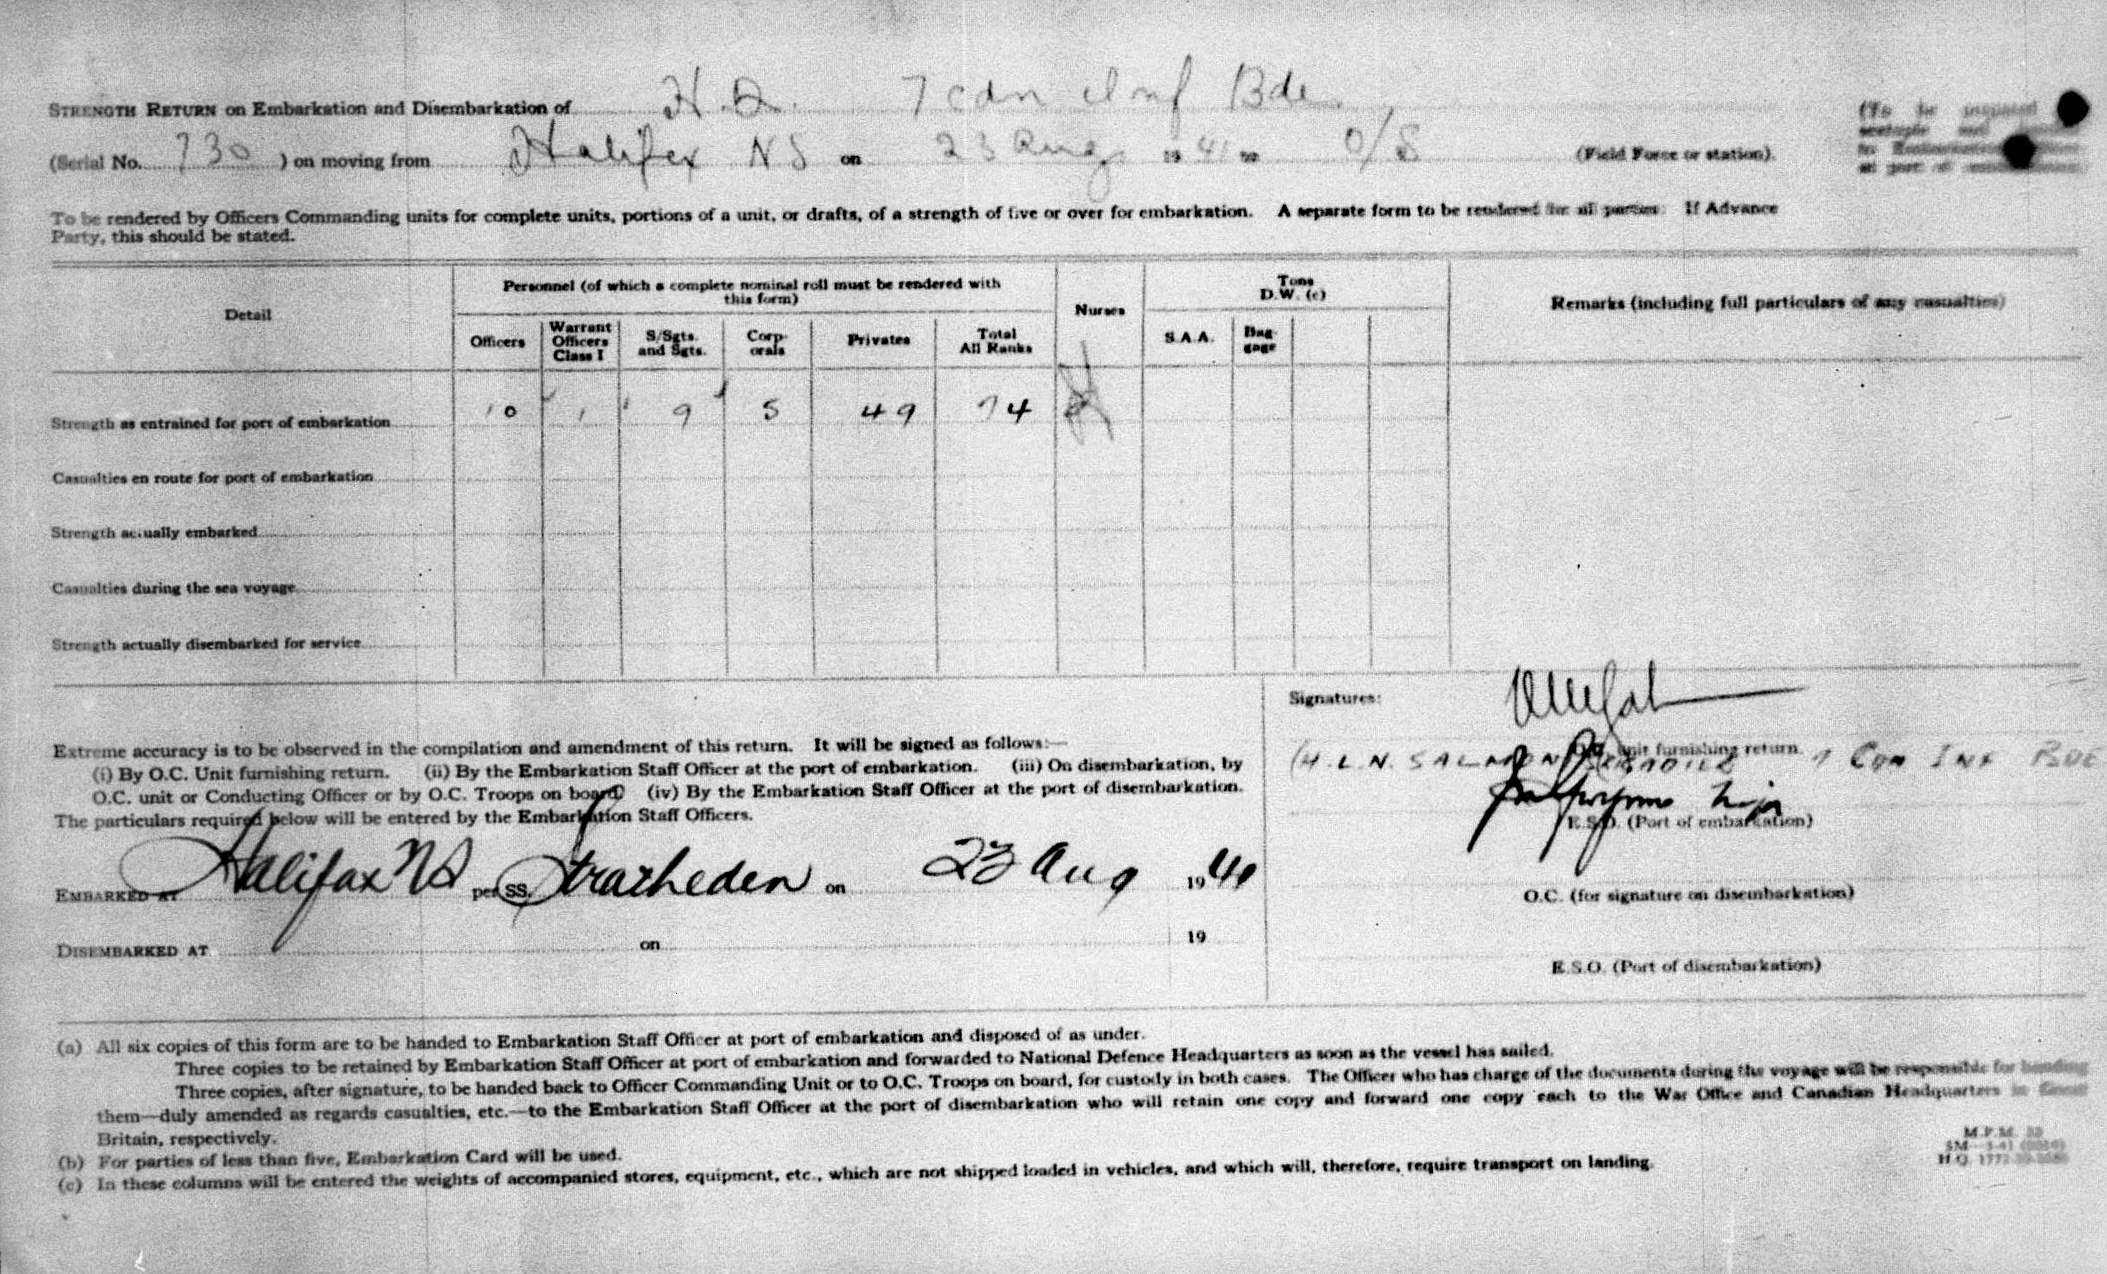 STRENGTH RETURN on Embarkation and Disembarkation of H.Q. 7 Cdn Inf Bde.
(To be prepared
(Serial No. 730 ) on moving from Halifax NS on 23 Aug 19 41 to O/S (Field Force or station).
To be rendered by Officers Commanding units for complete units, portions of a unit, or drafts, of a strength of five or over for embarkation. A separate form to be rendered for all parties. If Advance
Party, this should be stated.
Detail
Personnel (of which a complete nominal roll must be rendered with
this form)
Nurses
Tons
D.W. (c)
Remarks (including full particulars of any casualties)
Officers
Warrant
Officers
Class I
S/Sgts.
and Sgts.
Corp-
orals
Privates
Total
All Ranks
S.A.A.
Bag-
gage
Strength as entrained for port of embarkation 10 1 9 5 49 74
Casualties en route for port of embarkation
Strength actually embarked
Casualties during the sea voyage
Strength actually disembarked for service
Signatures:
Extreme accuracy is to be observed in the compilation and amendment of this return. It will be signed as follows:—
(i) By O.C. Unit furnishing return. (ii) By the Embarkation Staff Officer at the port of embarkation. (iii) On disembarkation, by
O.C. unit or Conducting Officer or by O.C. Troops on board. (iv) By the Embarkation Staff Officer at the port of disembarkation.
The particulars required below will be entered by the Embarkation Staff Officers.
O.C. unit furnishing return.
(H.L.N. SALMON 7 CDN INF BDE
Major
E.S.O. (Port of embarkation)
EMBARKED AT Halifax NS per SS. Stratheden on 23 Aug 1941
O.C. (for signature on disembarkation)
DISEMBARKED AT on 19
E.S.O. (Port of disembarkation)
(a) All six copies of this form are to be handed to Embarkation Staff Officer at port of embarkation and disposed of as under.
Three copies to be retained by Embarkation Staff Officer at port of embarkation and forwarded to National Defence Headquarters as soon as the vessel has sailed.
Three copies, after signature, to be handed back to Officer Commanding Unit or to O.C. Troops on board, for custody in both cases. The Officer who has charge of the documents during the voyage will be responsible for handing
them—duly amended as regards casualties, etc.—to the Embarkation Staff Officer at the port of disembarkation who will retain one copy and forward one copy each to the War Office and Canadian Headquarters in Great
Britain, respectively.
(b) For parties of less than five, Embarkation Card will be used.
(c) In these columns will be entered the weights of accompanied stores, equipment, etc., which are not shipped loaded in vehicles, and which will, therefore, require transport on landing.
M.F.M.
H.Q.